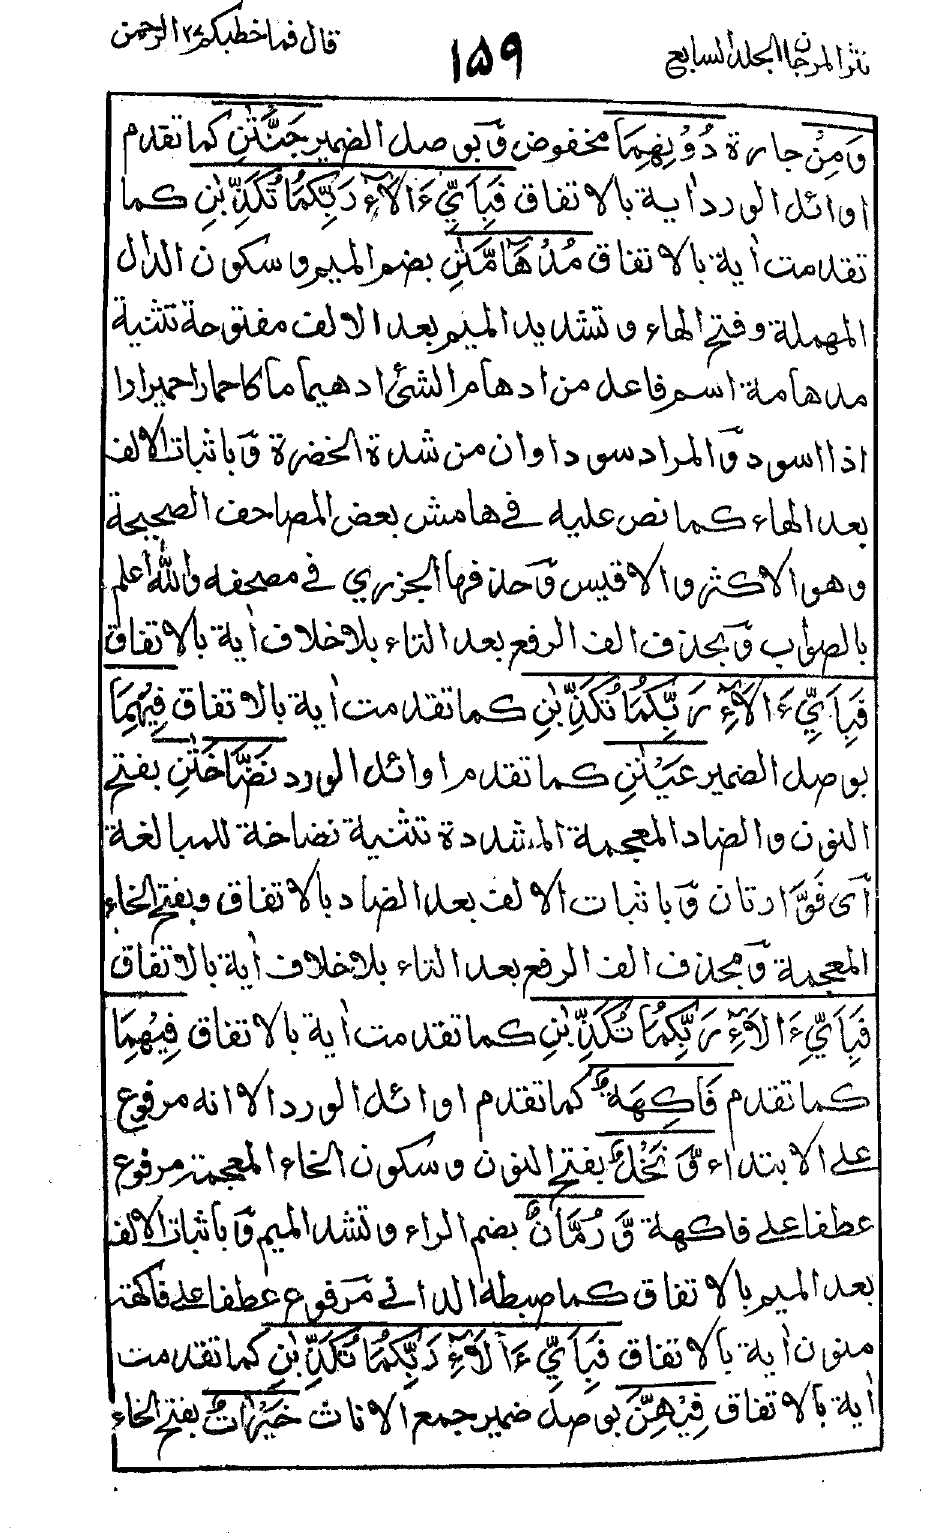 نثر المرجان الجلد السابع
١٥٩
قال فما خطبكم ٢٧ الرحمن
وَمِنْ جارة دُوْنِهِمَا مخفوض وۤبوصل الضمير جَنَّتٰنِ كما تقدم
اوائل الورد اٰية بالاتفاق فَبِاَيِّ ءَالَآءِ رَبِّكُمَا تُكَذِّبٰنِ كما
تقدمت اٰية بالاتفاق مُدْهَآمَّتٰنِ بضم الميم و سكون الدال
المهملة و فتح الهاء و تشديد الميم بعد الالف مفتوحة تثنية
مدهامة اسم فاعل من ادهام الشئ ادهيماما كاحمار احميرارا
اذا اسود وۤالمراد سوداوان من شدة الخضرة وۤباثبات الالف
بعد الهاء كما نص عليه في هامش بعض المصاحف الصحيحة
وهو الاكثر والاقيس وۤحذفها الجزري في مصحفه والله اعلم
بالصواب وۤبحذف الف الرفع بعد التاء بلا خلاف اٰية بالاتفاق
فَبِاَيِّ ءَالَآءِ رَبِّكُمَا تُكَذِّبٰنِ كما تقدمت اٰية بالاتفاق فِيْهِمَا
بوصل الضمير عَيْنٰنِ كما تقدم اوائل الورد نَضَّاخَتٰنِ بفتح
النون والضاد المعجمة المشددة تثنية نضاخة للمبالغة
اۤى فَوَّارتان وۤباثبات الالف بعد الضاد بالاتفاق وبفتح الخاء
المعجمة وۤبحذف الف الرفع بعد التاء بلا خلاف اٰية بالاتفاق
فَبِاَيِّ ءَالَآءِ رَبِّكُمَا تُكَذِّبٰنِ كما تقدمت اٰية بالاتفاق فِيْهِمَا
كما تقدم فَاكِهَةٌ كما تقدم اوائل الورد الا انه مرفوع
على الابتداء وَّ نَخْلٌ بفتح النون و سكون الخاء المعجمة مرفوع
عطفا على فاكهة وَّ رُمَّانٌ بضم الراء و تشد الميم وۤباثبات الالف
بعد الميم بالاتفاق كما ضبطه الداني مرفوع عطفا على فاكهة
منون اٰية بالاتفاق فَبِاَيِّ ءَالَآءِ رَبِّكُمَا تُكَذِّبٰنِ كما تقدمت
اٰية بالاتفاق فِيْهِنَّ بوصل ضمير جمع الاناث خَيْرٰتٌ بفتح الخاء